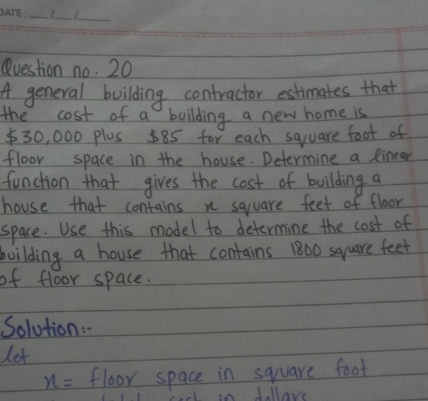 DATE: __/__/____
Question no. 20
A general building contractor estimates that
the cost of a building a new home is
$30,000 plus $85 for each square foot of
floor space in the house. Determine a linear
function that gives the cost of building a
house that contains x square feet of floor
space. Use this model to determine the cost of
building a house that contains 1800 square feet
of floor space.
Solution:-
let
x = floor space in square foot
cost in dollars